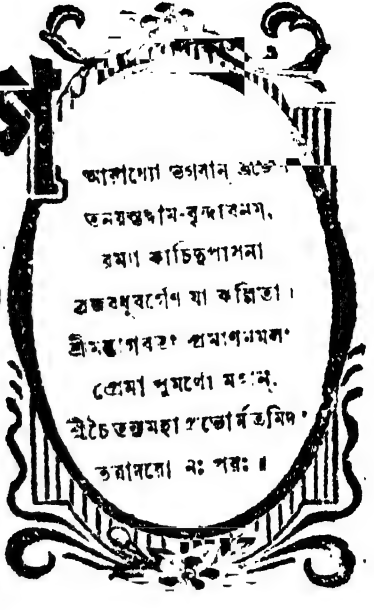 আরাধ্যো ভগবান্ ব্রজেশ
তনয়স্তদ্ধাম-বৃন্দাবনম্,
রম্যা কাচিদুপাসনা
ব্রজবধূবর্গেণ যা কল্পিতা ।
শ্রীমদ্ভাগবতং প্রমাণমমলং
প্রেমা পুমর্থো মহান্,
শ্রীচৈতন্যমহাপ্রভোর্মতমিদং
তত্রাদরো নঃ পরঃ ॥